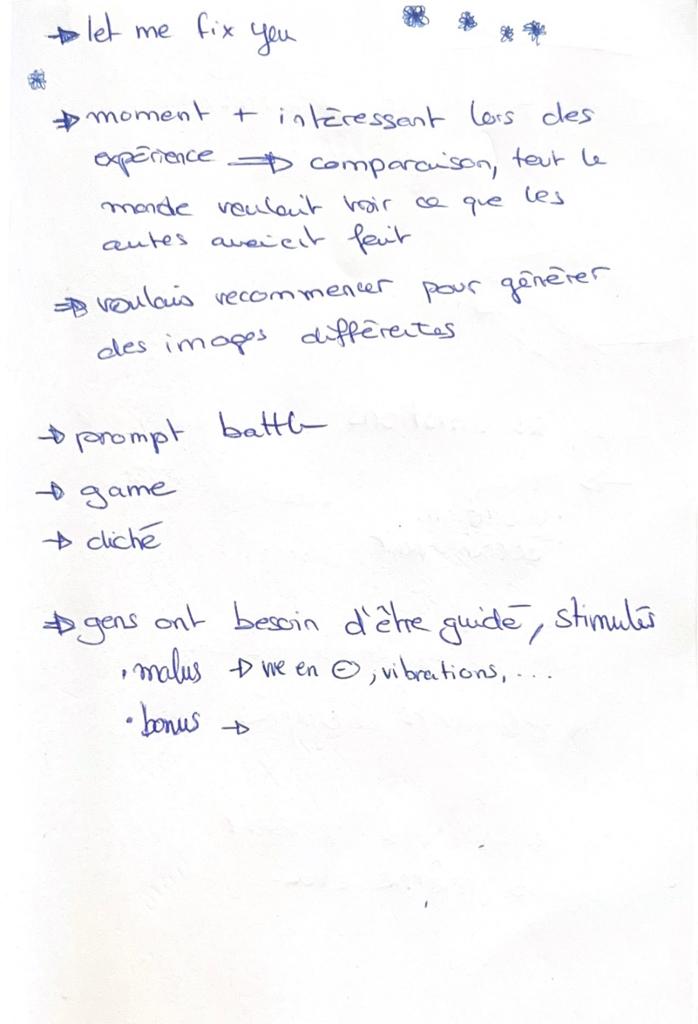 → let me fix you
⇒ moment + intéressant lors des
expérience ⇒ comparaison, tout le
monde voulait voir ce que les
autres avaient fait
⇒ voulais recommencer pour générer
des images différentes
→ prompt battle
→ game
→ cliché
⇒ gens ont besoin d'être guidé, stimulés
. malus → vie en ⊖, vibrations, ...
• bonus →